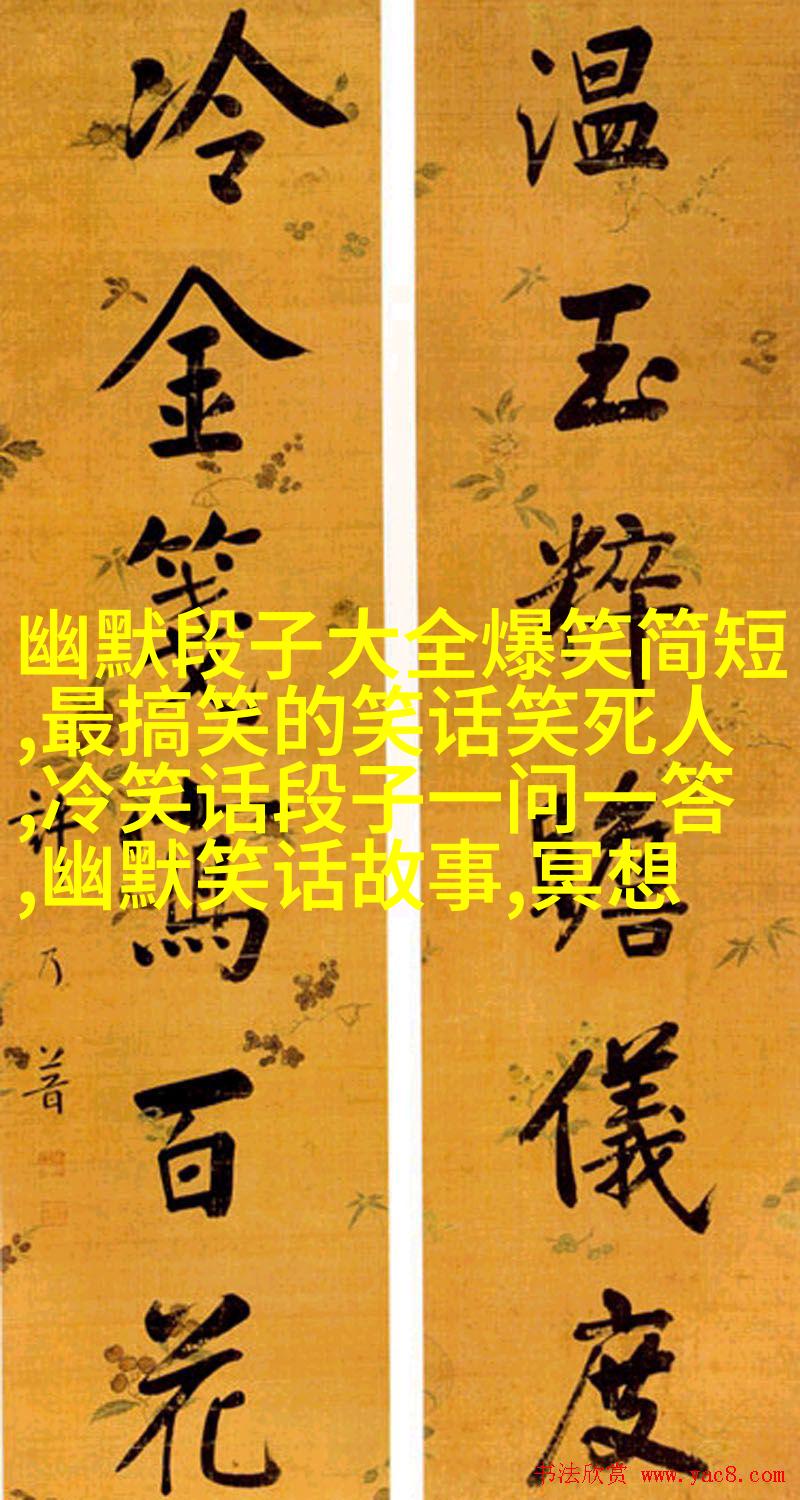 温玉粹瞻儀度
冷金箋寫百花
許乃普
幽默段子大全爆笑简短
,最搞笑的笑话笑死人
,冷笑话段子一问一答
,幽默笑话故事,冥想
书法欣赏 www.yac8.com